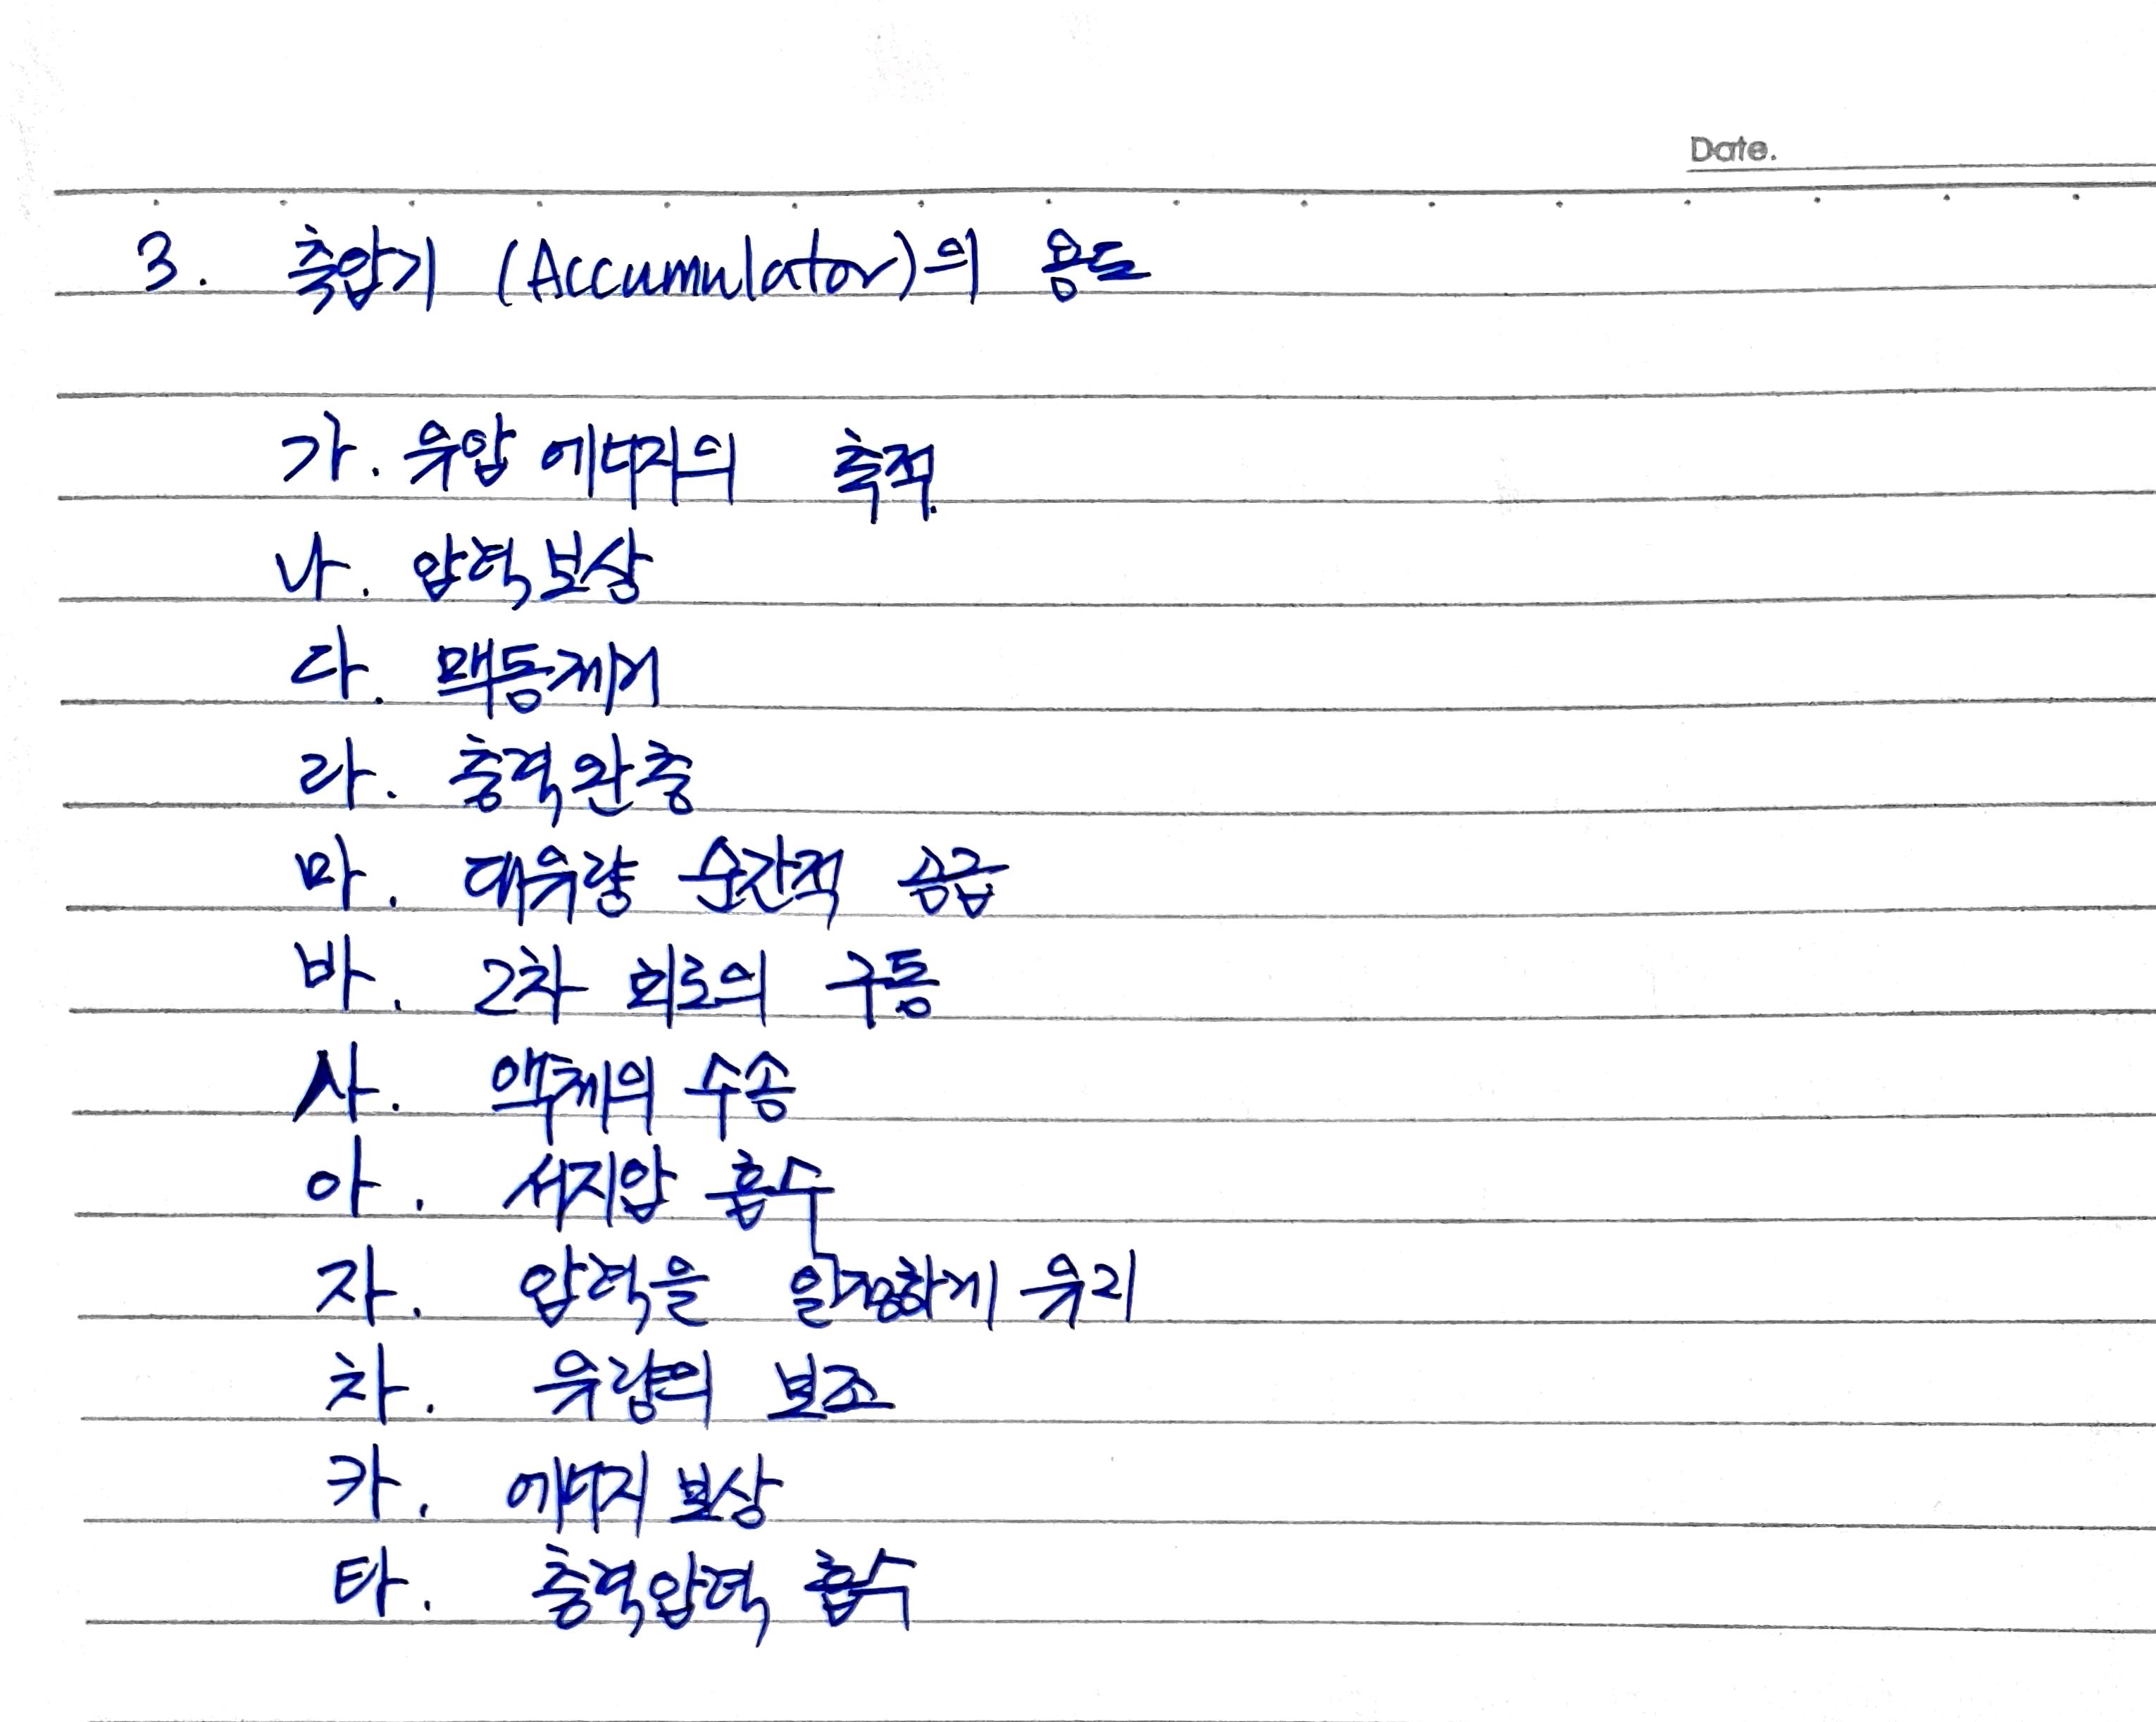 Date.
3. 축압기 (Accumulator)의 용도
가. 유압 에너지의 축적
나. 압력보상
다. 맥동제거
라. 충격완충
마. 대유량 순간적 공급
바. 2차 회로의 구동
사. 액체의 수송
아. 서지압 흡수
자. 압력을 일정하게 유지
차. 유량의 보조
카. 에너지 보상
타. 충격압력 흡수